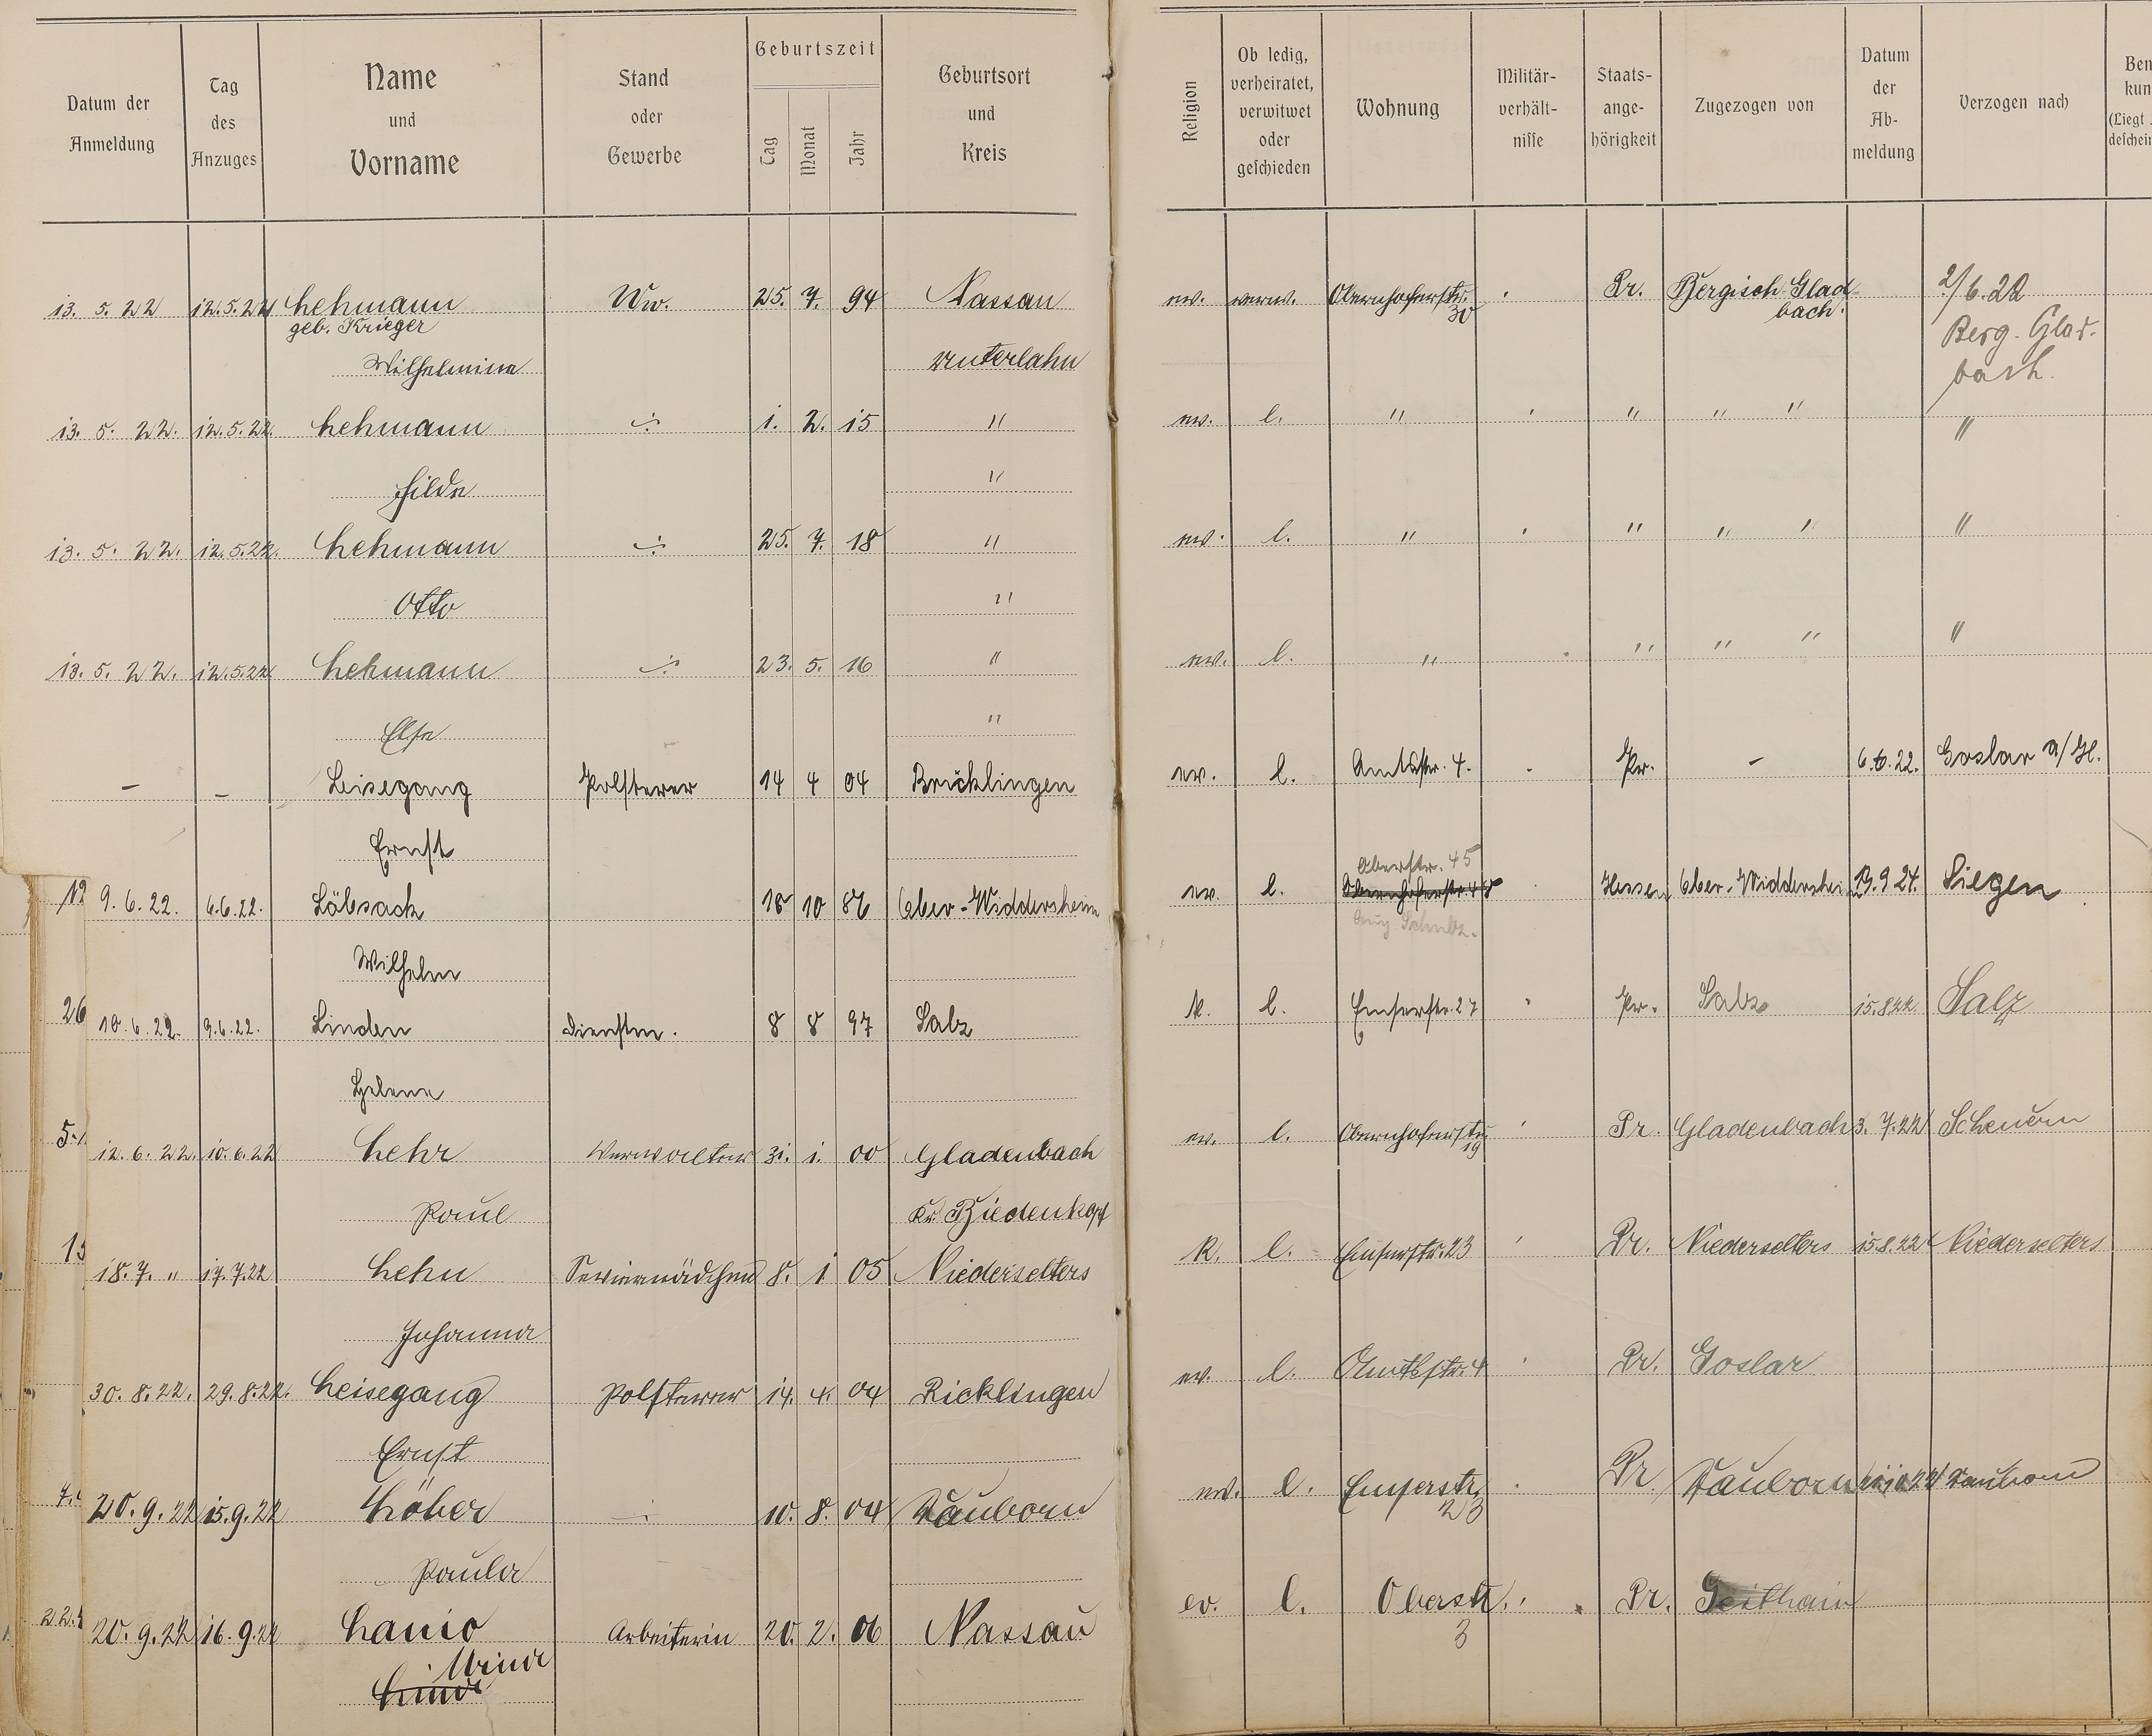 Datum der Anmeldung | Tag des Anzuges | Name und Vorname | Stand oder Gewerbe | Geburtszeit Tag Monat Jahr | Geburtsort und Kreis | Religion | Ob ledig, verheiratet, verwitwet oder geschieden | Wohnung | Militär-verhält-nisse | Staats-ange-hörigkeit | Zugezogen von | Datum der Ab-meldung | Verzogen nach
13. 5. 22 12.5.22 Lehmann Ww. 25. 7. 94 Nassau ev. verw. Obernhoferstr. 30 Pr. Bergisch-Gladbach. 2/6.22
geb. Krieger Berg. Glad.
Wilhelmine Unterlahn bach.
13. 5. 22. 12.5.22. Lehmann ∹ 1. 2. 15 " ev. l. " " " " "
Hilde "
13. 5. 22. 12.5.22. Lehmann ∹ 25. 7. 18 " ev. l. " " " " "
Otto "
13. 5. 22. 12.5.22 Lehmann ∹ 23. 5. 16 " ev. l. " " " " "
Else "
– – Leisegang Polsterer 14 4 04 Bricklingen ev. l. Amtsstr. 4. Pr. – 6.6.22. Goslar a/H.
Ernst
Oberstr. 45
12 9.6.22. 6.6.22. Löbsack 18 10 86 Ober-Widdersheim ev. l. Obernhoferstr. 45 Hessen Ober-Widdersheim 13.9 24. Siegen
Wilhelm
26 10.6.22. 9.6.22. Linden Dienstm. 8 8 97 Salz K. l. Emserstr. 27 Pr. Salz 15.8.22. Salz
Helene
5. 12. 6. 22. 10.6.22 Lehr Verwalter 31. 1. 00 Gladenbach ev. l. Obernhoferstr. 19 Pr. Gladenbach 3. 7.22 Scheuern
Paul Kr. Biedenkopf
15 18.7. " 17.7.22 Lehn Serviermädchen 8. 1 05 Niederselters K. l. Emserstr. 23 Pr. Niederselters 15.8.22 Niederselters
Johanna
30. 8. 22. 29.8.22. Leisegang Polsterer 14. 4. 04 Ricklingen ev. l. Amtsstr. 4 Pr. Goslar
Ernst
7. 20. 9. 22 15.9.22 Löber 10. 8. 04 Dauborn ev. l. Emserstr. 23 Pr Dauborn Dauborn
Paula
22. 20. 9. 22 16. 9.22 Lanio Arbeiterin 20. 2. 06 Nassau ev. l. Oberstr. 3 Pr. Geithain
Mina